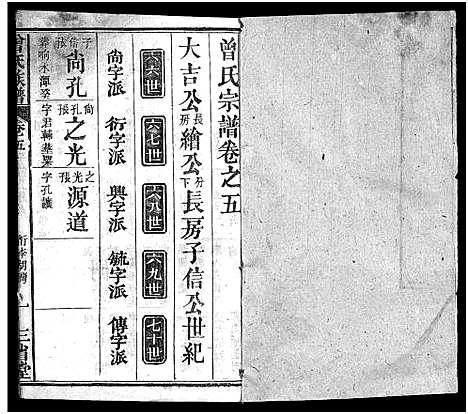 曾氏宗譜卷之五
大吉公長房繪公分下長房子信公世紀
六六世 六七世 六八世 六九世 七十世
尙字派 衍字派 興字派 毓字派 傳字派
子信長 尙孔
尙孔長 之光
之光長 源道
字孔讓
曾氏族譜 卷之五
三省堂